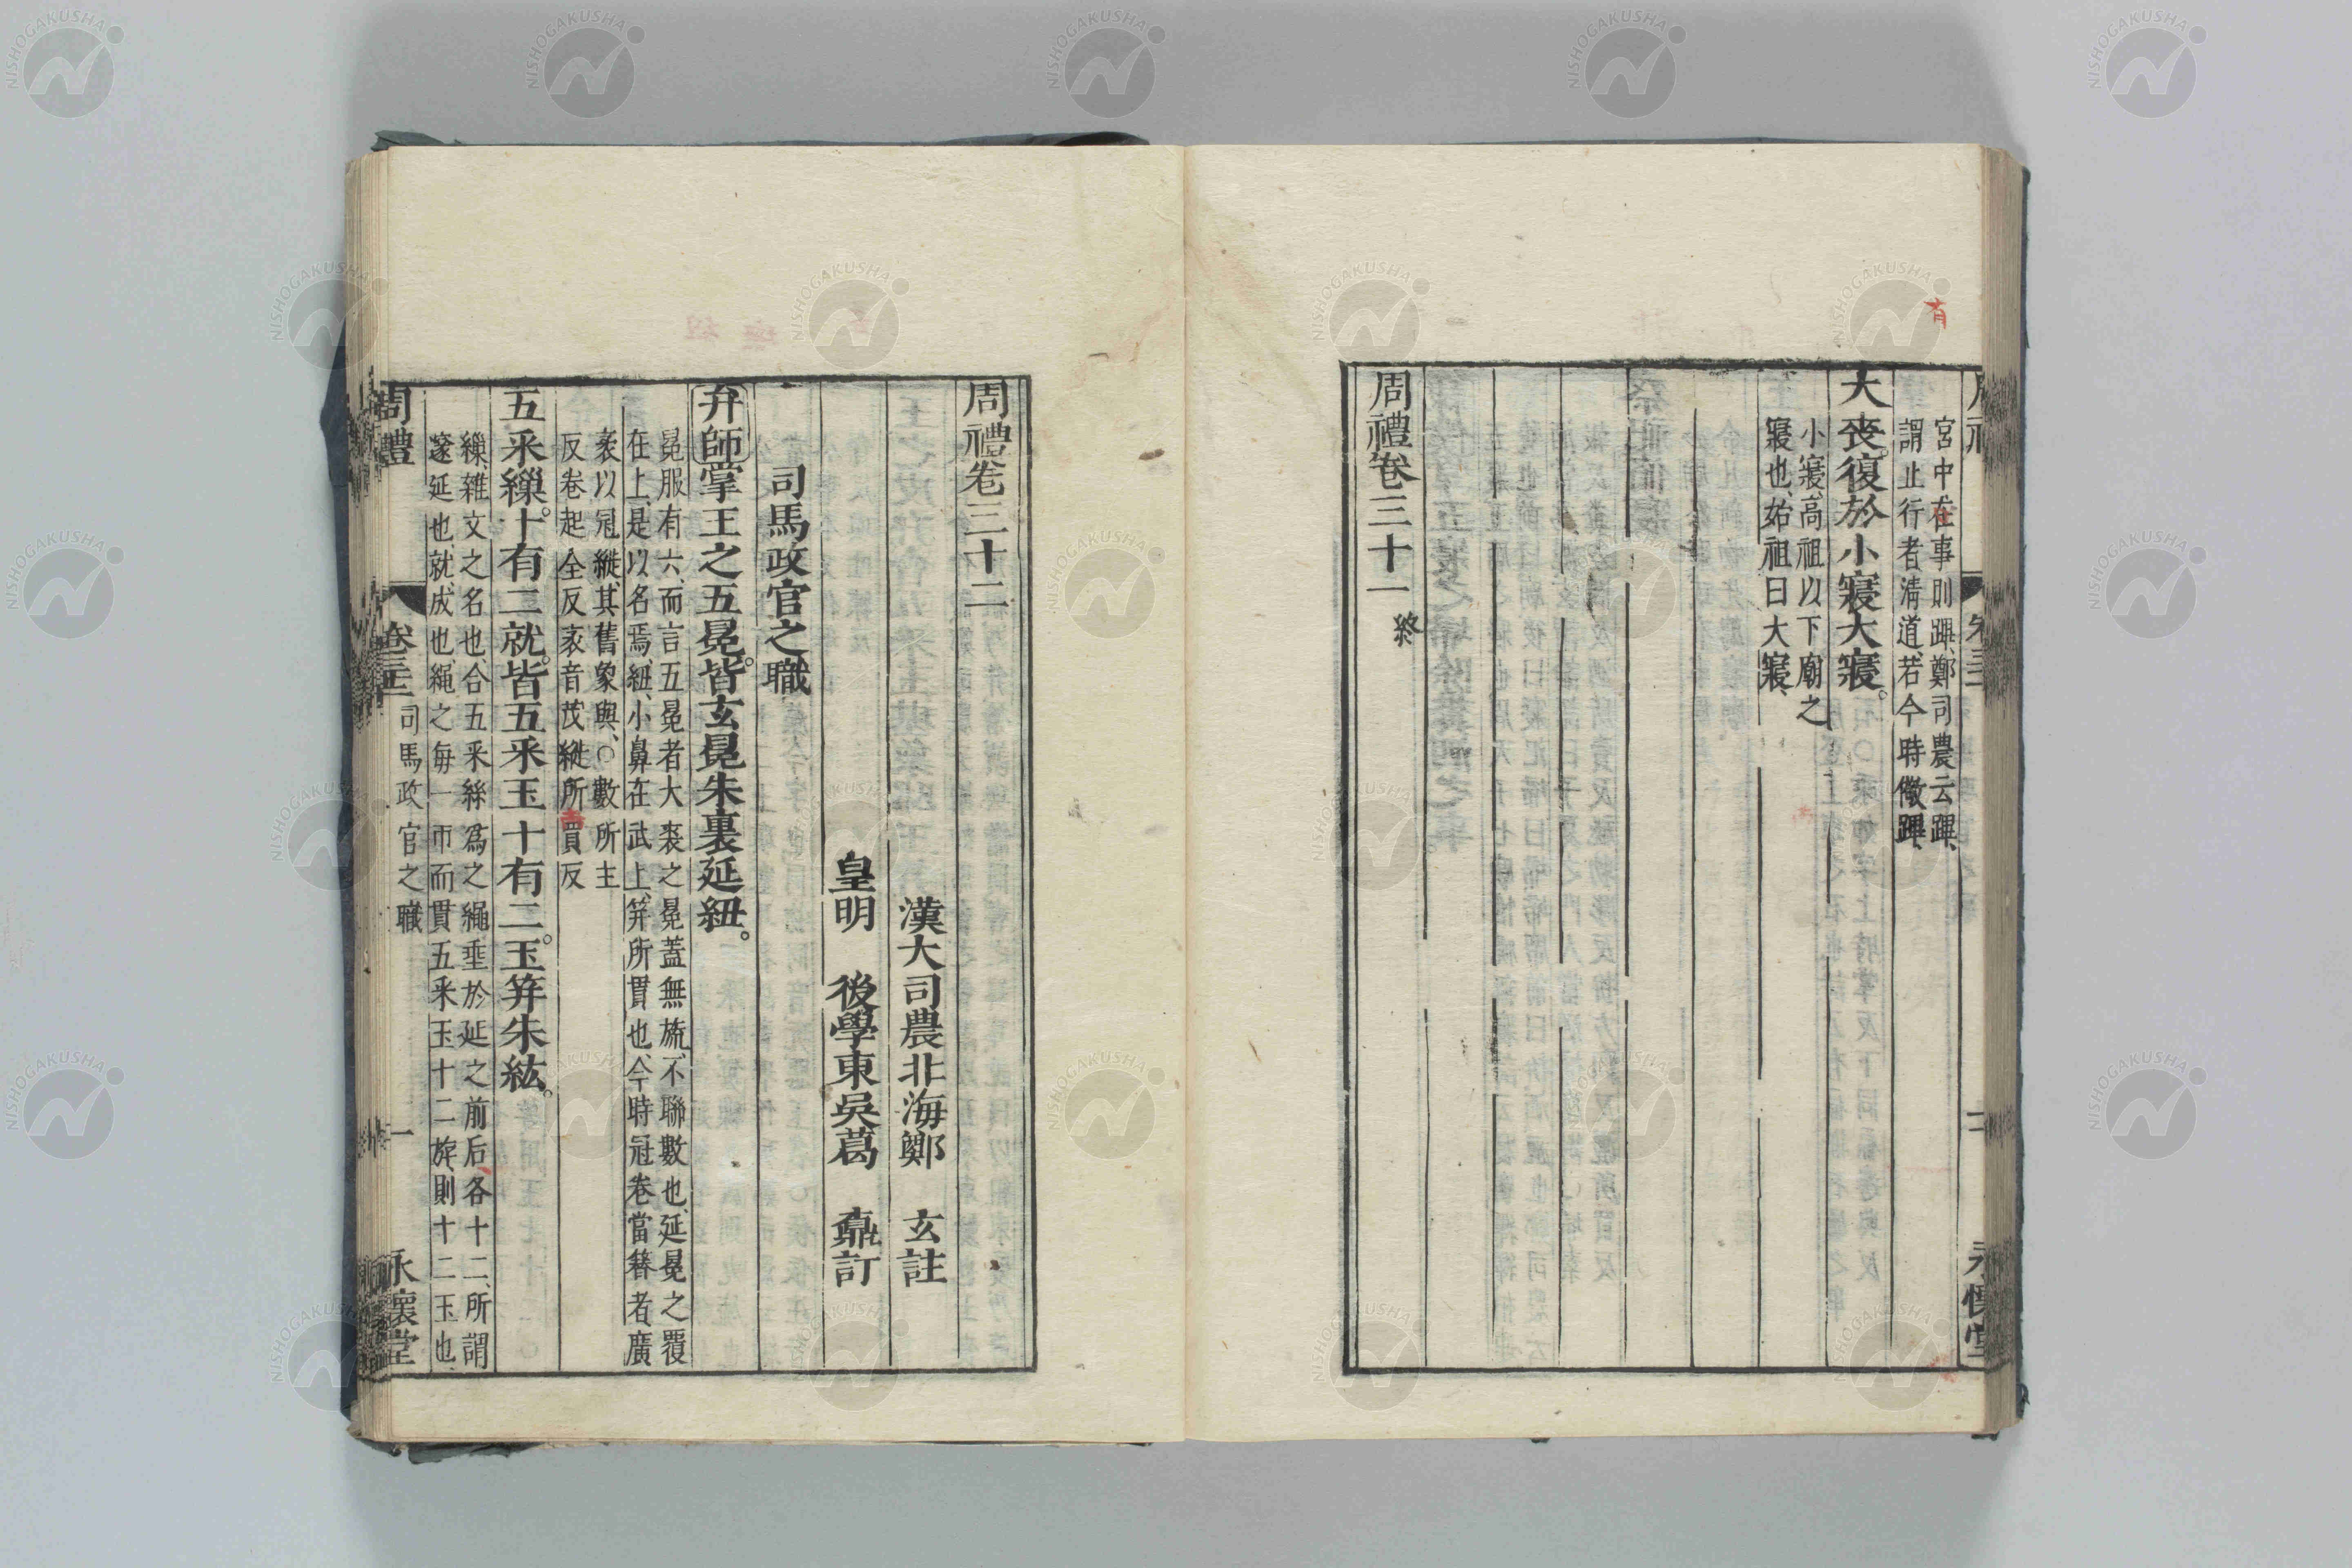 宮中有事則蹕、鄭司農云蹕、
謂止行者清道、若今時儆蹕、
大喪。復於小寢大寢。
小寢、高祖以下廟之
寢也、始祖曰大寢、
周禮卷三十一 終
永懷堂
周禮卷三十二
漢大司農北海鄭 玄註
皇明 後學東吳葛 鼒訂
司馬政官之職
弁師掌王之五冕。皆玄冕朱裏延紐。
冕服有六、而言五冕者、大裘之冕蓋無旒、不聯數也、延冕之覆
在上、是以名焉、紐、小鼻在武上、笄所貫也、今時冠卷當簪者、廣
袤以冠縰、其舊象與、○數所主
反卷起全反袤音茂縰所買反
五采繅。十有二就。皆五采玉十有二。玉笄朱紘。
繅、雜文之名也、合五采絲爲之繩、垂於延之前后、各十二、所謂
邃延也、就、成也、繩之每一帀而貫五采玉、十二斿、則十二玉也、
周禮 卷三十二 司馬政官之職 一 永懷堂
NISHOGAKUSHA